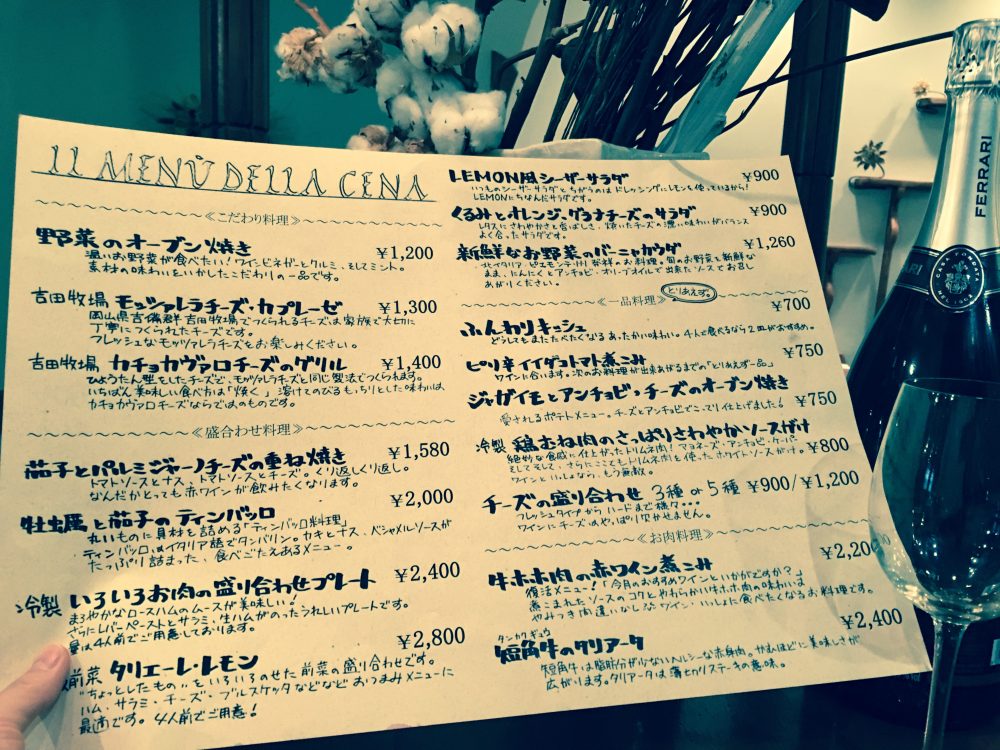 IL MENÙ DELLA CENA
《こだわり料理》
野菜のオーブン焼き ¥1,200
温いお野菜が食べたい!ワインビネガーとクルミ、そしてミント。
素材の味わいをいかしたこだわりの一品です。
吉田牧場 モッツァレラチーズ・カプレーゼ ¥1,300
岡山県吉備群 吉田牧場でつくられるチーズは、家族で大切に
丁寧につくられたチーズです。
フレッシュなモッツァレラチーズをお楽しみください。
吉田牧場 カチョカヴァロチーズのグリル ¥1,400
ひょうたん型をしたチーズで、モッツァレラチーズと同じ製法でつくられます。
いちばん美味しい食べ方は「焼く」溶けてのびるもっちりとした味わいは
カチョカヴァロチーズならではのものです。
《盛合わせ料理》
茄子とパルミジャーノチーズの重ね焼き ¥1,580
トマトソースとナス、トマトソースとチーズ。くり返しくり返し。
なんだかとっても赤ワインが飲みたくなります。
牡蠣と茄子のティンバッロ ¥2,000
丸いものに具材を詰める「ティンバッロ料理」
ティンバッロはイタリア語でタンバリン。カキとナス、ベシャメルソースが
たっぷり詰まった、食べごたえあるメニュー。
冷製 いろいろお肉の盛り合わせプレート ¥2,400
まろやかなロースハムのムースが美味しい!
さらにレバーペーストとサラミ、生ハムがのったうれしいプレートです。
量は4人前でご用意しております。
前菜 タリエーレ・レモン ¥2,800
"ちょっとしたもの"をいろいろのせた前菜の盛り合わせです。
ハム・サラミ・チーズ・ブルスケッタなどなどおつまみメニューに
最適です。4人前でご用意!
LEMON風シーザーサラダ ¥900
いつものシーザーサラダとちがうのは ドレッシングにレモンを使っているから!
LEMONにちなんだサラダです。
くるみとオレンジ、グラナチーズのサラダ ¥900
レタスにさわやかさと香ばしさ、焼いたチーズの濃い味わいがバランス
よく合ったサラダです。
新鮮なお野菜のバーニャカウダ ¥1,260
北イタリア・ピエモンテ州発祥のお料理。旬のお野菜を新鮮な
まま、にんにくとアンチョビ・オリーブオイルで出来たソースでお召し
あがりください。
《一品料理》 とりあえず。
ふんわりキッシュ ¥700
どうしてもまたたべたくなる あったかい味わい。4人で食べるなら2皿がおすすめ。
ピリ辛イイダコトマト煮こみ ¥750
ワインに合います。次のお料理が出来あがるまでの「とりあえず一品」
ジャガイモとアンチョビ・チーズのオーブン焼き ¥750
愛されるポテトメニュー。チーズとアンチョビでこってり仕上げました!
冷製 鶏むね肉のさっぱりさわやかソースがけ ¥800
絶妙な食感に仕上がったトリムネ肉! マヨネーズ・アンチョビ・ケーパー
そしてそして、さらにここにもトリムネ肉を使ったホワイトソースがけ。
ワインといっしょなら、もう無敵。
チーズの盛り合わせ 3種 or 5種 ¥900/¥1,200
フレッシュタイプから ハードまで様々...
ワインにチーズはやっぱり欠かせません。
《お肉料理》
牛ホホ肉の赤ワイン煮こみ ¥2,200
復活メニュー!「今月のおすすめワインといかがですか?」
煮こまれたソースのコクとやわらかい牛ホホ肉の味わいは
やみつき間違いなし!! ワインといっしょに食べたくなるお料理です。
タンカクギュウ
短角牛のタリアータ ¥2,400
短角牛は脂肪分が少ないヘルシーな赤身肉。かむほどに美味しさが
広がります。タリアータは薄切りステーキの意味。
FERRARI